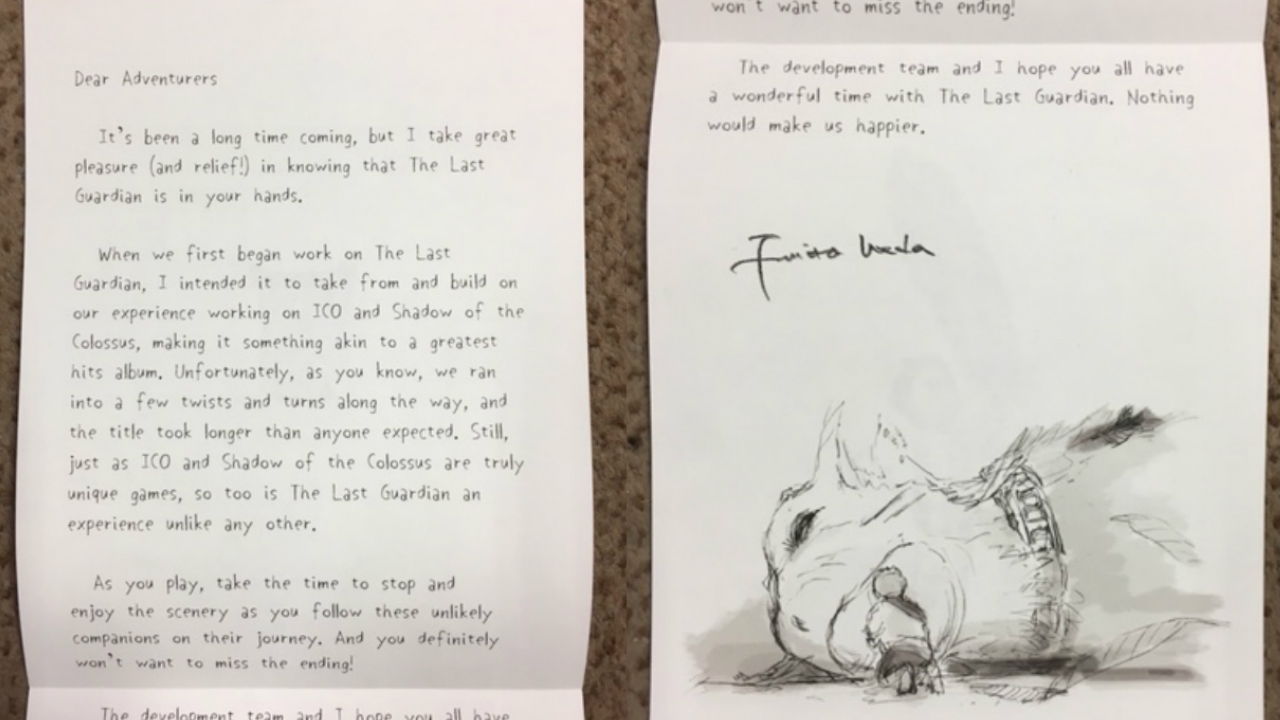 Dear Adventurers
It's been a long time coming, but I take great
pleasure (and relief!) in knowing that The Last
Guardian is in your hands.
When we first began work on The Last
Guardian, I intended it to take from and build on
our experience working on ICO and Shadow of the
Colossus, making it something akin to a greatest
hits album. Unfortunately, as you know, we ran
into a few twists and turns along the way, and
the title took longer than anyone expected. Still,
just as ICO and Shadow of the Colossus are truly
unique games, so too is The Last Guardian an
experience unlike any other.
As you play, take the time to stop and
enjoy the scenery as you follow these unlikely
companions on their journey. And you definitely
won't want to miss the ending!
The development team and I hope you all have
won't want to miss the ending!
The development team and I hope you all have
a wonderful time with The Last Guardian. Nothing
would make us happier.
Fumito Ueda